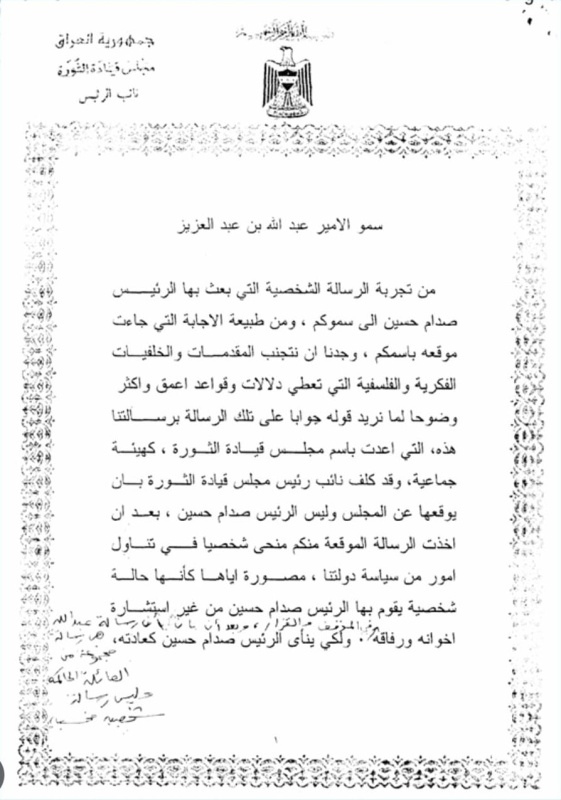 جمهورية العراق
مجلس قيادة الثورة
نائب الرئيس
سمو الامير عبد الله بن عبد العزيز
من تجربة الرسالة الشخصية التي بعث بها الرئيس
صدام حسين الى سموكم ، ومن طبيعة الاجابة التي جاءت
موقعه باسمكم ، وجدنا ان نتجنب المقدمات والخلفيات
الفكرية والفلسفية التي تعطي دلالات وقواعد اعمق واكثر
وضوحا لما نريد قوله جوابا على تلك الرسالة برسالتنا
هذه، التي اعدت باسم مجلس قيادة الثورة ، كهيئة
جماعية، وقد كلف نائب رئيس مجلس قيادة الثورة بان
يوقعها عن المجلس وليس الرئيس صدام حسين ، بعد ان
اخذت الرسالة الموقعة منكم منحى شخصيا في تناول
امور من سياسة دولتنا ، مصورة اياها كأنها حالة
شخصية يقوم بها الرئيس صدام حسين من غير استشارة
رسالة عبدالله
اخوانه ورفاقه . ولكي ينأى الرئيس صدام حسين كعادته،
هي رسالة
من
العائلة الحاكمة
وليس رسالة
شخصية
١